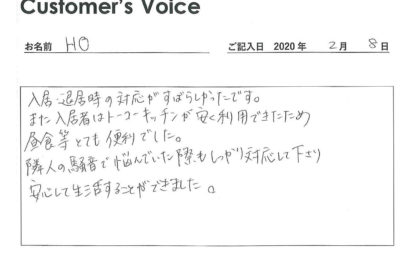 Customer's Voice
お名前 HO ご記入日 2020 年 2 月 8 日
入居・退居時の対応がすばらしかったです。
また入居者はトーコーキッチンが安く利用できたため
昼食等とても便利でした。
隣人の騒音で悩んでいた際もしっかり対応して下さり
安心して生活することができました。